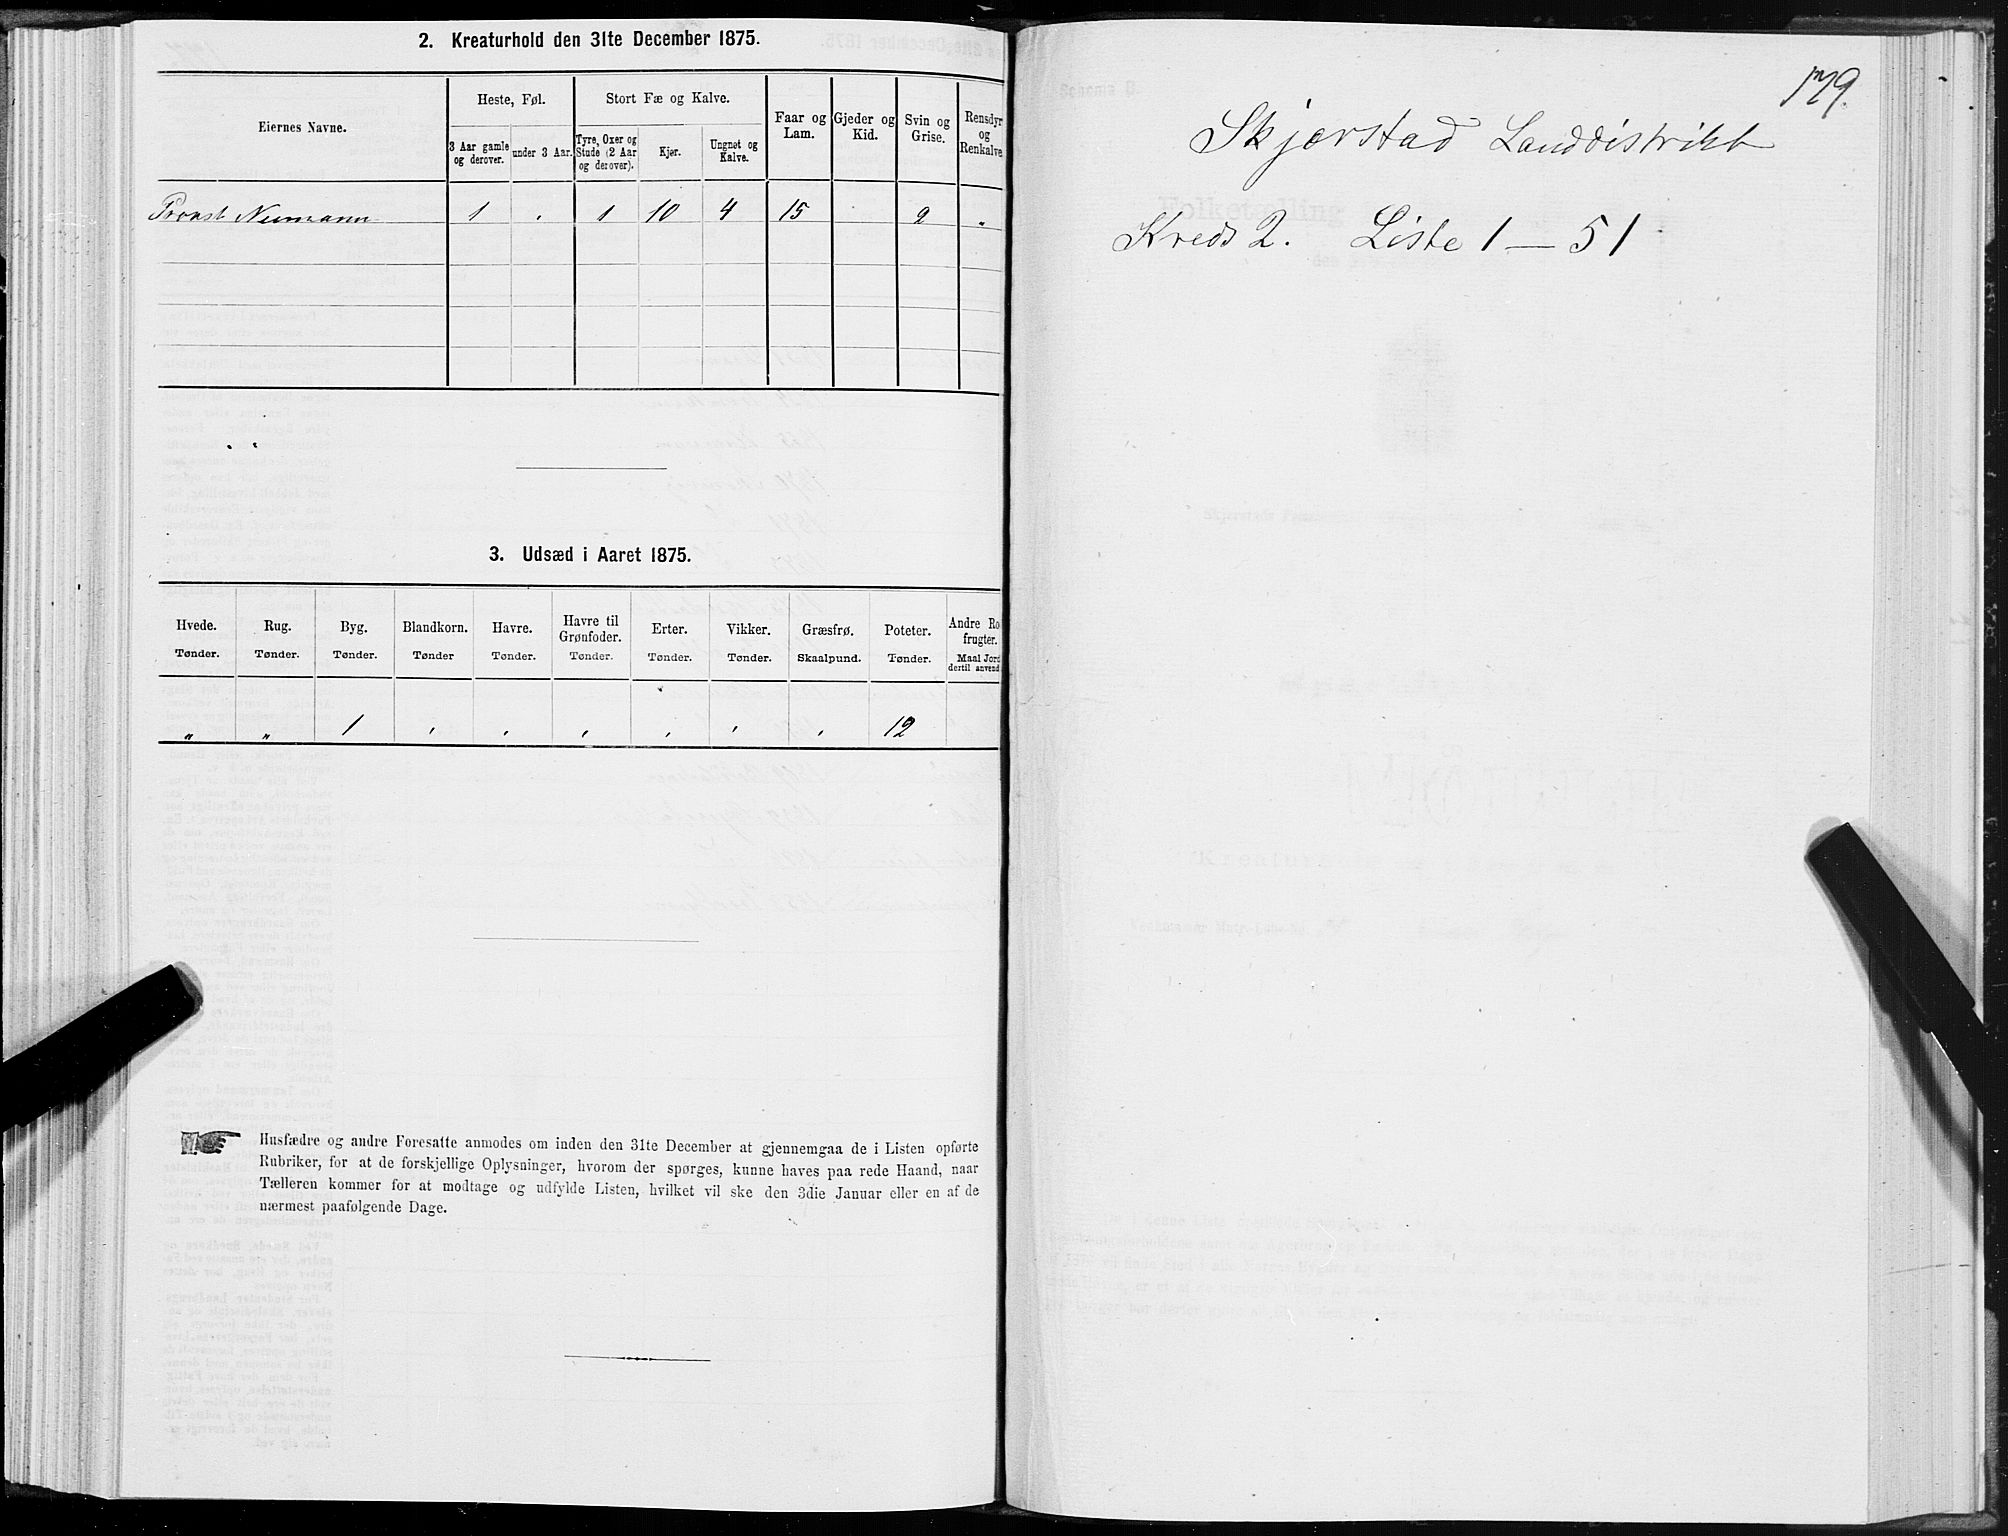 2. Kreaturhold den 31te December 1875.
Eiernes Navne.
Heste, Føl.
Stort Fæ og Kalve.
Faar og Lam.
Gjeder og Kid.
Svin og Grise.
Rensdyr og Renkalve
3 Aar gamle og derover.
under 3 Aar.
Tyre, Oxer og Stude (2 Aar og derover).
Kjør.
Ungnet og Kalve.
Provst Neumann 1 . 1 10 4 15 2 „
3. Udsæd i Aaret 1875.
Hvede. Rug. Byg. Blandkorn. Havre. Havre til Grønfoder. Erter. Vikker. Græsfrø. Poteter. Andre Ro frugter.
Tønder. Tønder. Tønder. Tønder Tønder. Tønder. Tønder. Tønder. Skaalpund. Tønder. Maal Jord dertil anvend
„ „ 1 , , , , , , 12
Husfædre og andre Foresatte anmodes om inden den 31te December at gjennemgaa de i Listen opførte
Rubriker, for at de forskjellige Oplysninger, hvorom der spørges, kunne haves paa rede Haand, naar
Tælleren kommer for at modtage og udfylde Listen, hvilket vil ske den 3die Januar eller en af de
nærmest paafølgende Dage.
179.
Skjerstad Landdistrikt
Kreds 2. Liste 1 — 51